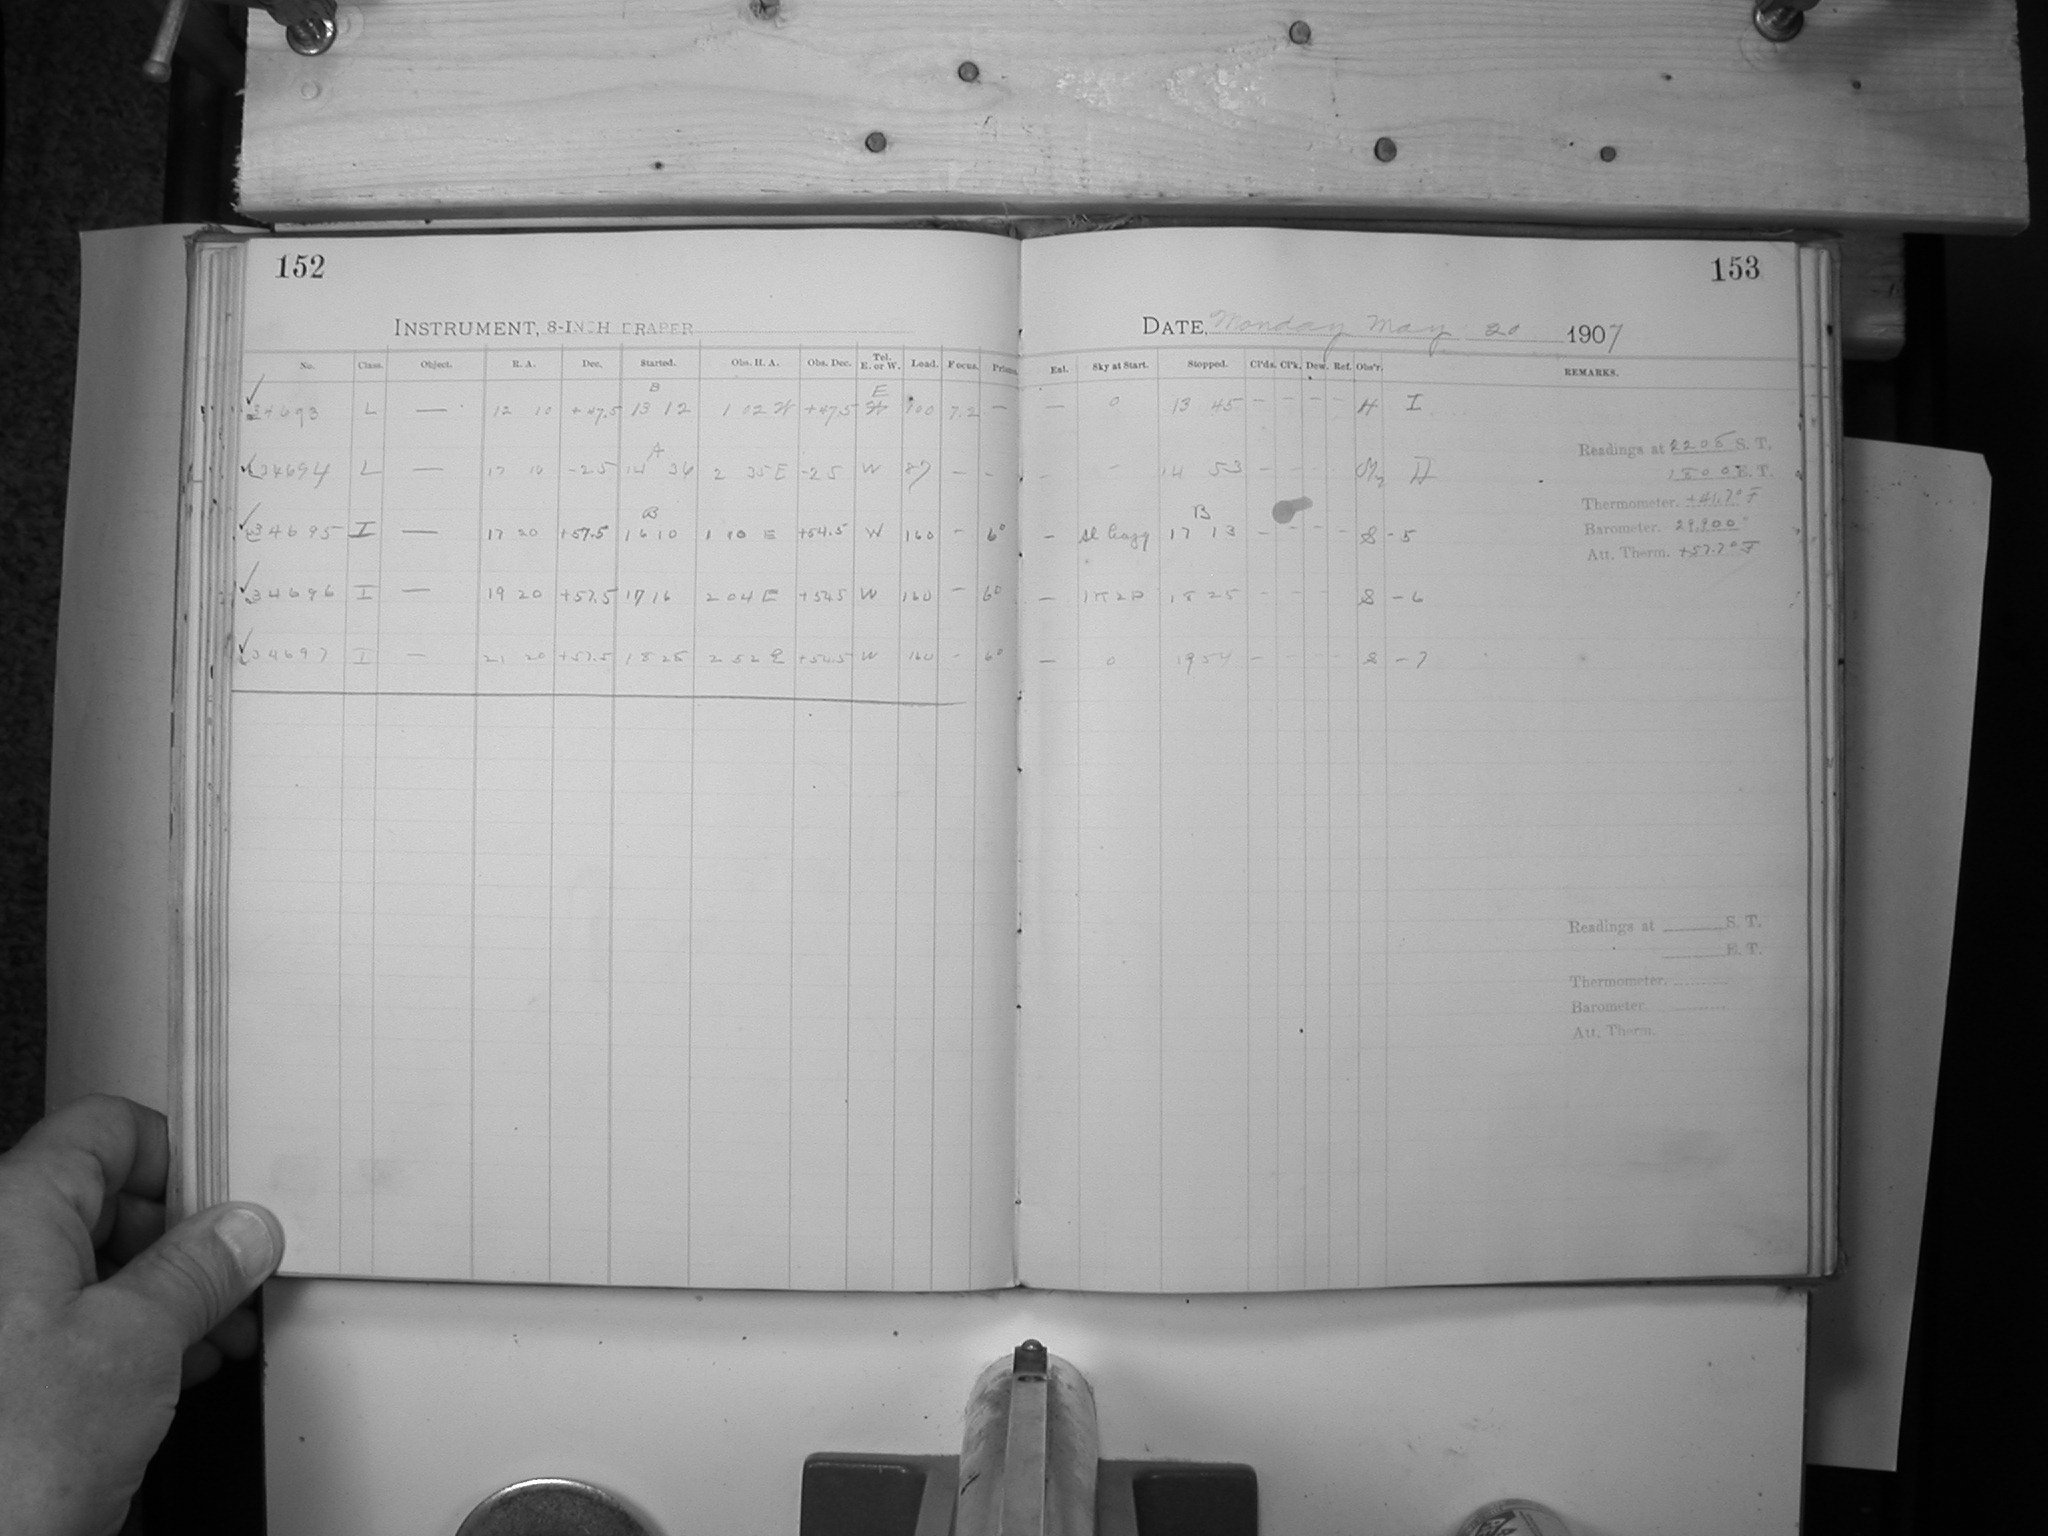 152
INSTRUMENT, 8-INCH DRAPER
No. Class. Object. R. A. Dec. Started. Obs. H. A. Obs. Dec. Tel. E. or W. Load. Focus. Prisms.
B E
34693 L — 12 10 +47.5 13 12 1 02 W +47.5 W 100 7.2 —
A
34694 L — 17 10 -25 14 36 2 35 E -25 W 87 — —
B
34695 I — 17 20 +57.5 16 10 1 10 E +54.5 W 160 — 6°
34696 I — 19 20 +57.5 17 16 2 04 E +54.5 W 160 — 6°
34697 I — 21 20 +57.5 18 28 2 52 E +54.5 W 160 — 6°
153
DATE, Monday May 20 1907
Eal. Sky at Start. Stopped. Cl'ds. Cl'k. Dew. Ref. Obs'r. REMARKS.
— 0 13 45 — — — — H I
— — 14 53 — — — II
B
— Sl hazy 17 13 — — — — S - 5
— 18 25 — — — — S - 6
— 0 19 54 — — — — S - 7
Readings at 2205 S. T.
1800 E. T.
Thermometer. +41.7° F
Barometer. 29.900
Att. Therm. +57.7° F
Readings at S. T.
E. T.
Thermometer.
Barometer.
Att. Therm.